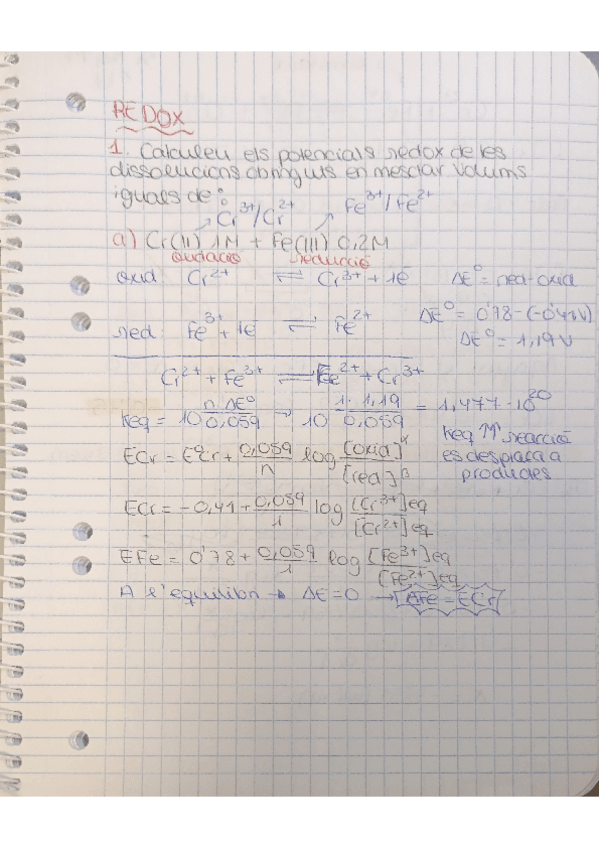 REDOX
1. Calculeu els potencials redox de les
dissolucions obtinguts en mesclar volums
iguals de:
Cr³⁺/Cr²⁺ Fe³⁺/Fe²⁺
a) Cr(II) 1M + Fe(III) 0,2M
oxidació reducció
oxid Cr²⁺ ⇌ Cr³⁺ + 1e⁻ ΔE° = red - oxid
red Fe³⁺ + 1e⁻ ⇌ Fe²⁺ ΔE° = 0'78 - (-0'41V)
ΔE° = 1,19 V
Cr²⁺ + Fe³⁺ ⇌ Fe²⁺ + Cr³⁺
Keq = 10 n·ΔE°/0,059 → 10 1·1,19/0,059 = 1,477·10²⁰
Keq ↑↑ reacció
es desplaça a
productes
ECr = E°Cr + 0,059/n log [oxid]ᵅ/[red]ᵝ
ECr = -0,41 + 0,059/1 log [Cr³⁺]eq/[Cr²⁺]eq
EFe = 0'78 + 0,059/1 log [Fe³⁺]eq/[Fe²⁺]eq
A l'equilibri → ΔE = 0 → EFe = ECr